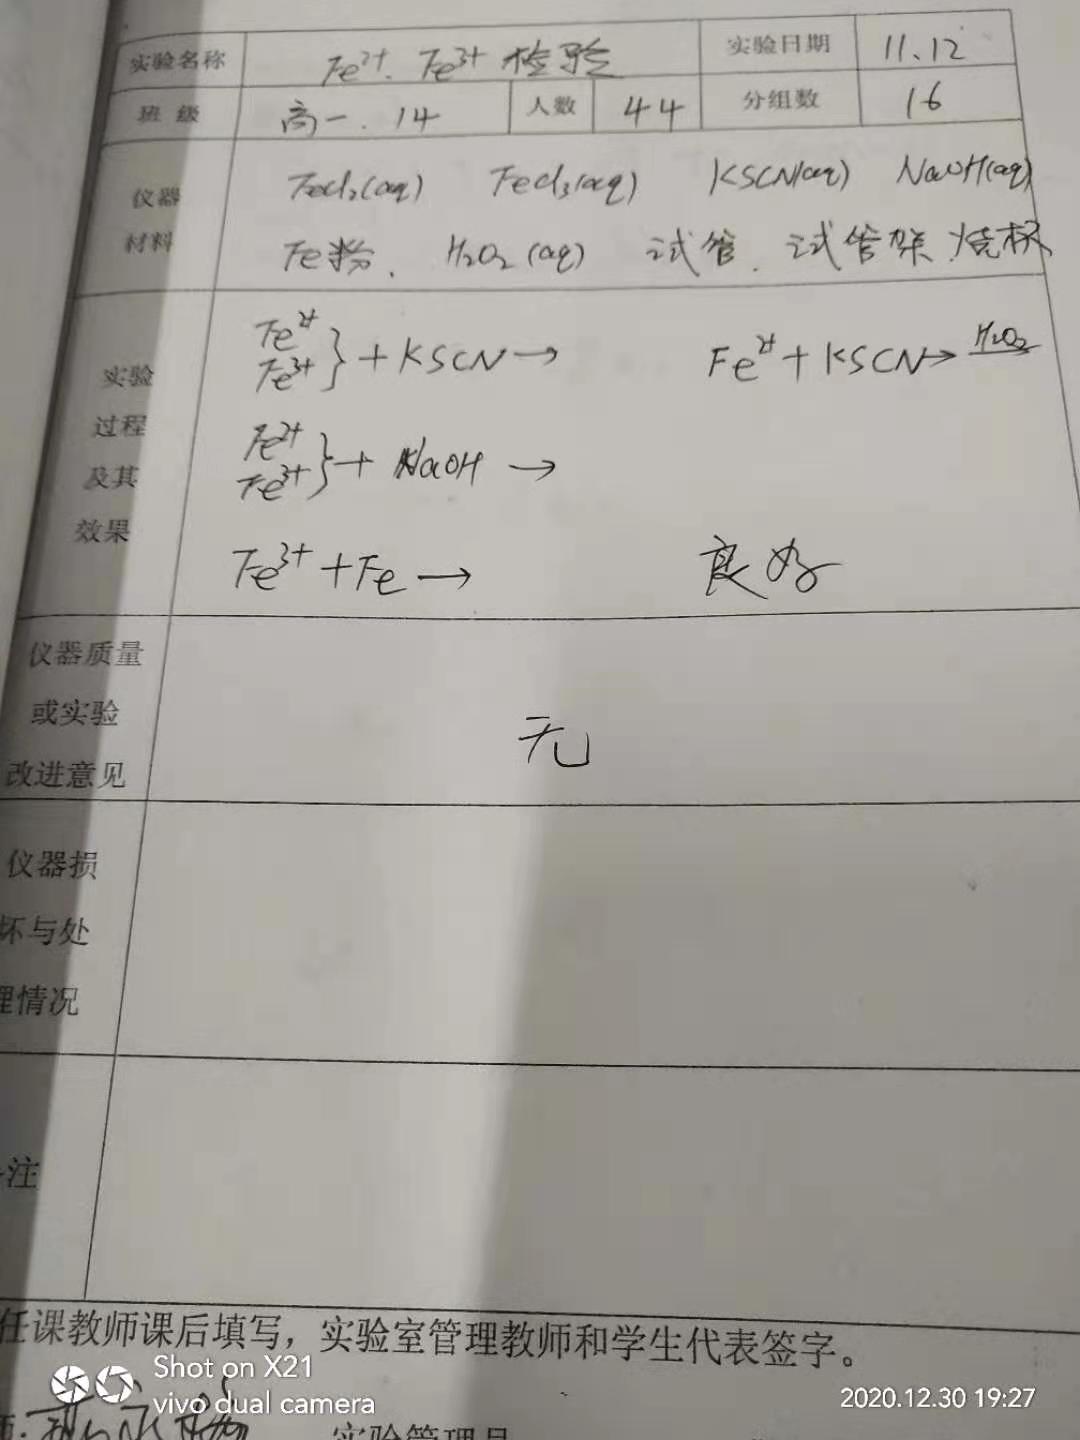 实验名称 Fe²⁺、Fe³⁺检验 实验日期 11.12
班 级 高一.14 人数 44 分组数 16
仪器 FeCl₂(aq) FeCl₃(aq) KSCN(aq) NaOH(aq)
材料 Fe粉、 H₂O₂(aq) 试管、试管架 烧杯
Fe²⁺
Fe³⁺ } + KSCN → Fe²⁺ + KSCN → H₂O₂
实验
过程
Fe²⁺
Fe³⁺ } + NaOH →
及其
效果
Fe³⁺ + Fe → 良好
仪器质量
或实验
无
改进意见
仪器损
坏与处
理情况
注
任课教师课后填写，实验室管理教师和学生代表签字。
Shot on X21
vivo dual camera
2020.12.30 19:27
实验管理员